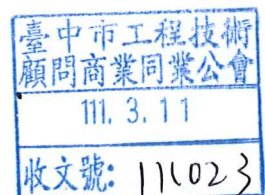 臺中市工程技術
顧問商業同業公會
111. 3. 11
收文號: 111023